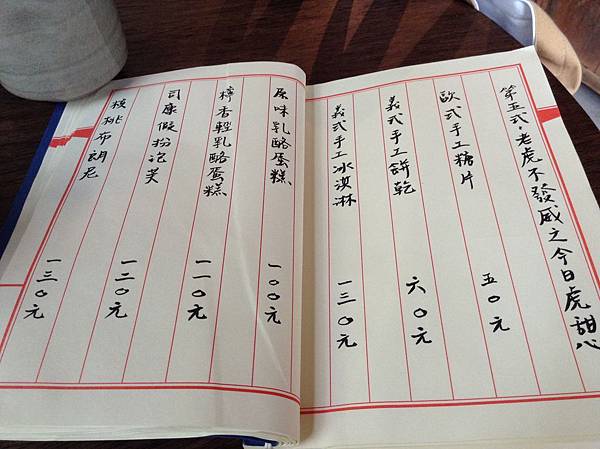 第五式，老虎不發威之今日虎甜心
歐式手工糖片 五〇元
義式手工餅乾 六〇元
義式手工冰淇淋 一三〇元
原味乳酪蛋糕 一〇〇元
檸香輕乳酪蛋糕 一一〇元
司康假扮泡芙 一二〇元
核桃布朗尼 一三〇元